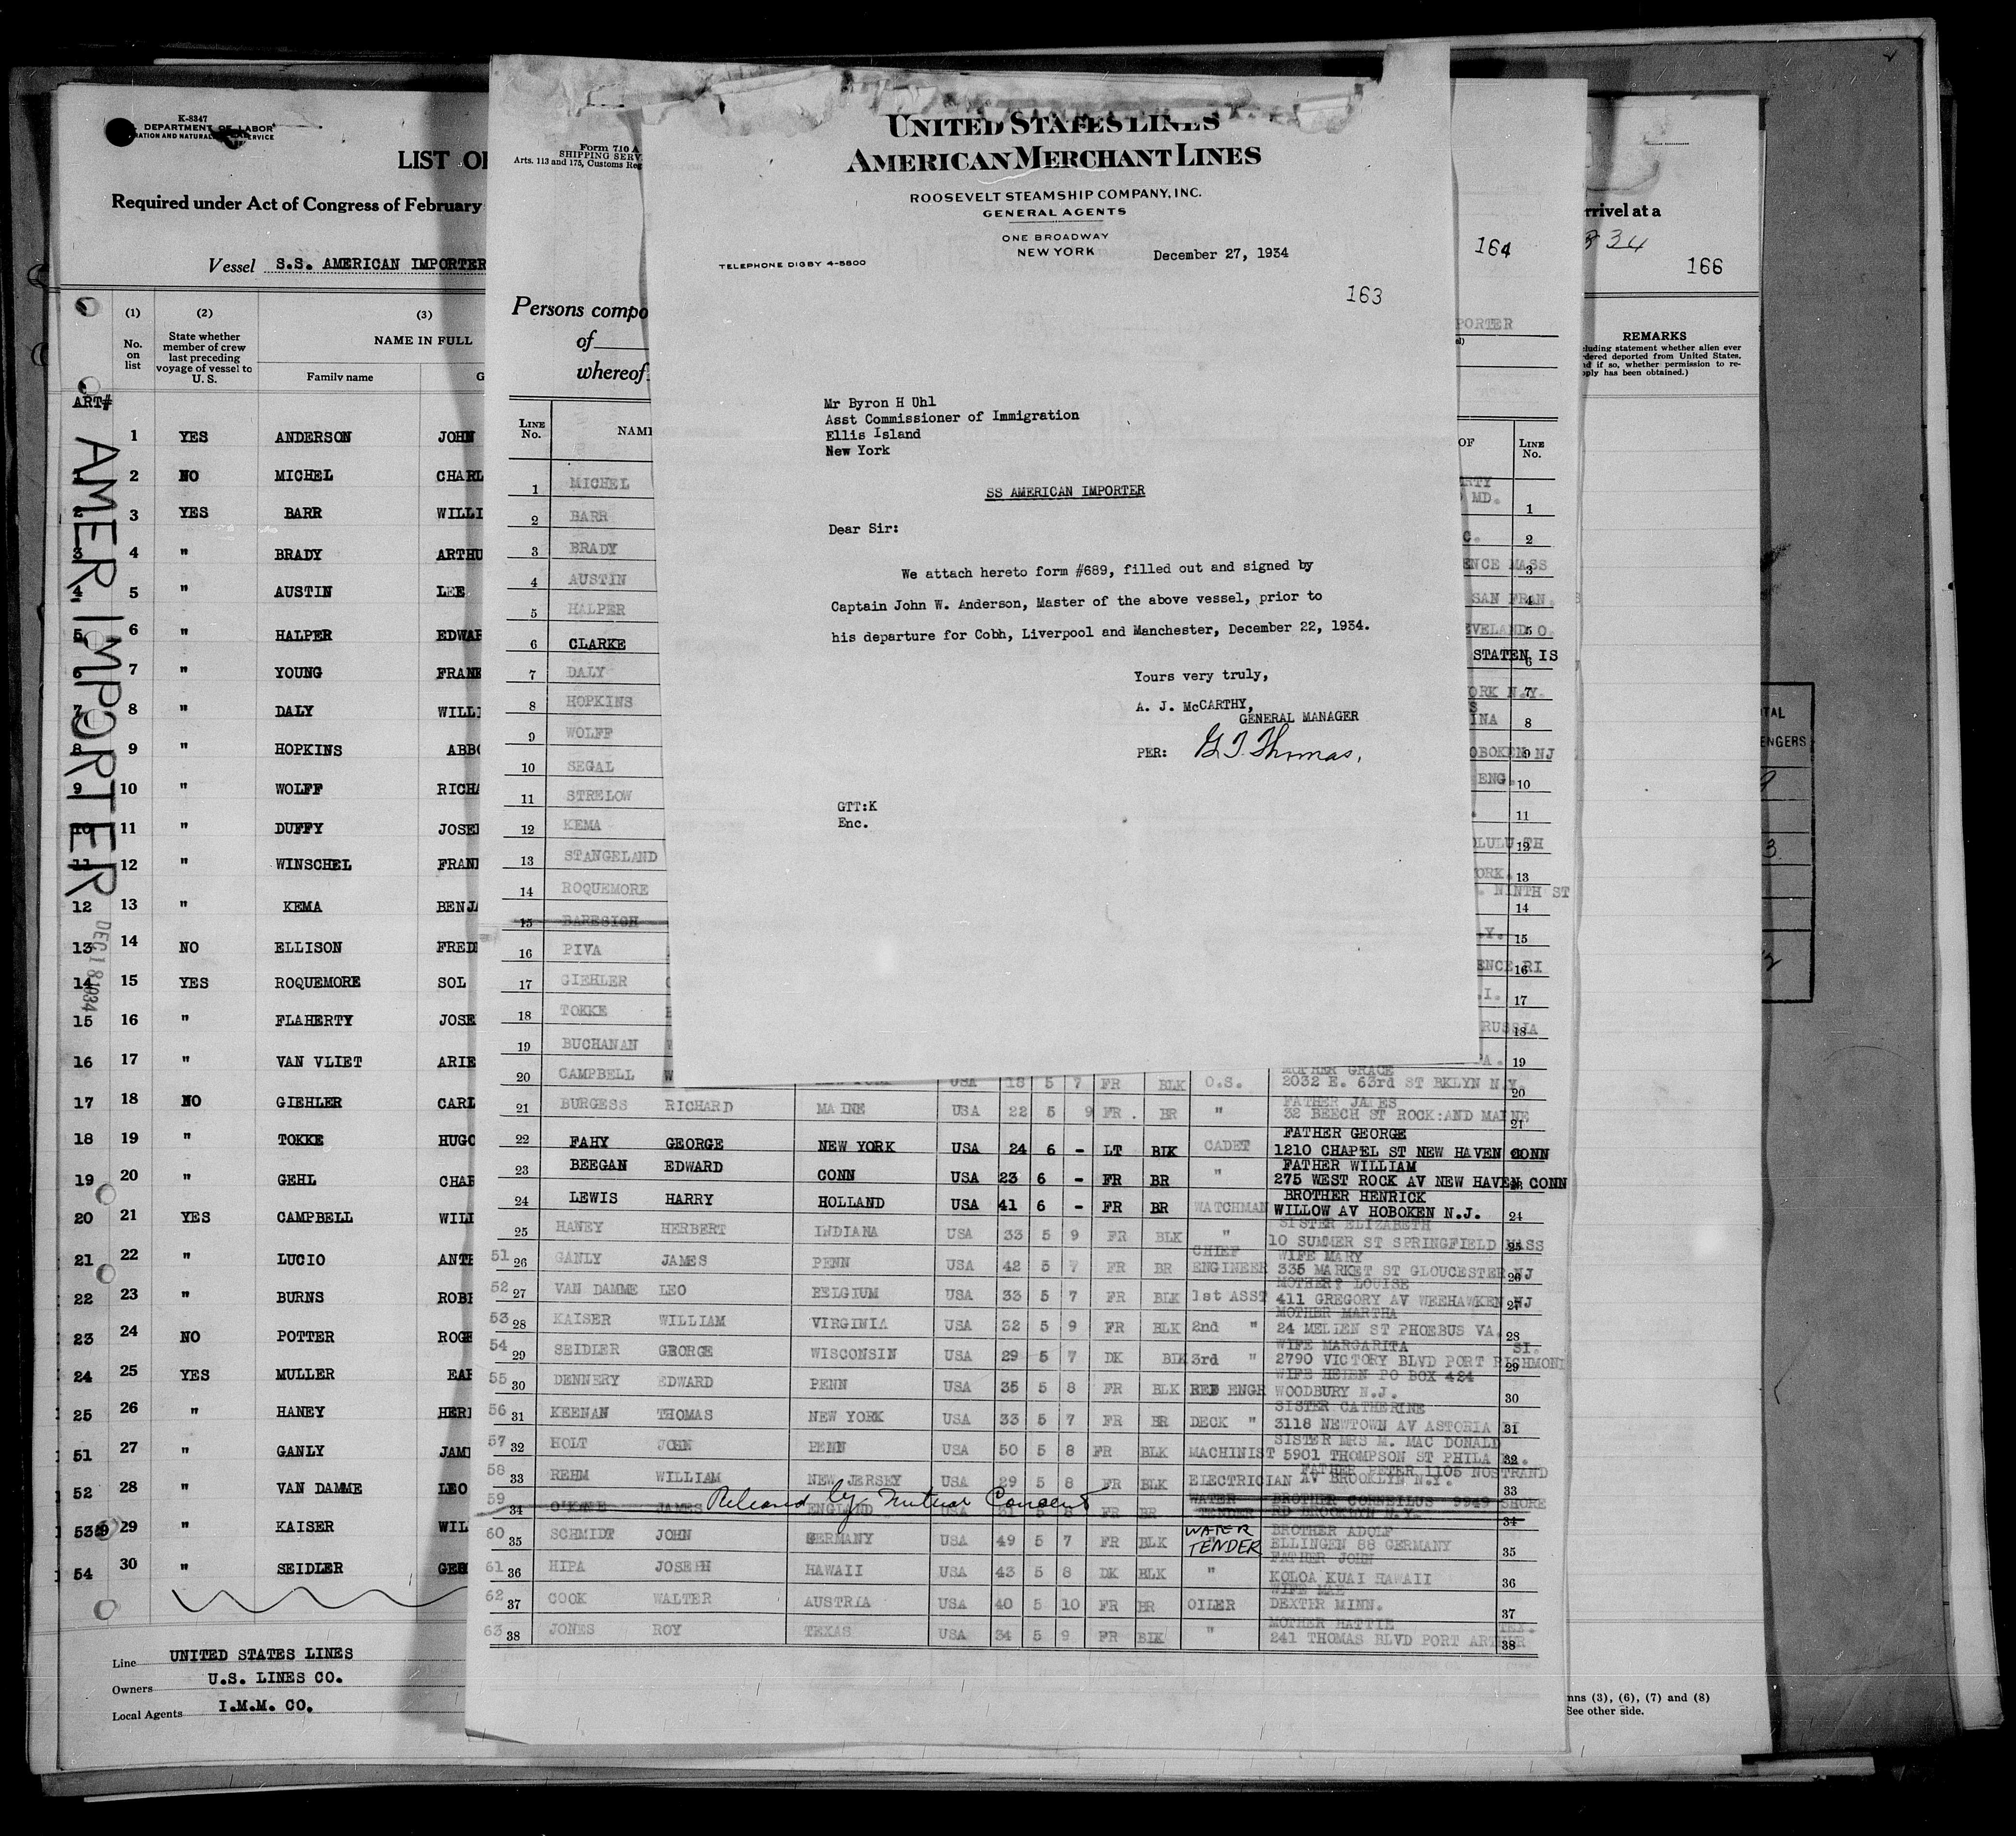 K-8347
DEPARTMENT OF LABOR
LIST
Required under Act of Congress of February
Vessel S.S. AMERICAN IMPORTER
(1) (2) (3)
No. on list
State whether member of crew last preceding voyage of vessel to U. S.
NAME IN FULL
Family name
ART#
AMER IMPORTER
DEC 18 1934
1 YES ANDERSON JOHN
1 2 NO MICHEL CHARL
2 3 YES BARR WILLI
3 4 " BRADY ARTHU
4 5 " AUSTIN LEE
5 6 " HALPER EDWAR
6 7 " YOUNG FRANK
7 8 " DALY WILLI
8 9 " HOPKINS ABBO
9 10 " WOLFF RICHA
10 11 " DUFFY JOSE
11 12 " WINSCHEL FRAN
12 13 " KEMA BENJA
13 14 NO ELLISON FRED
14 15 YES ROQUEMORE SOL
15 16 " FLAHERTY JOSE
16 17 " VAN VLIET ARIE
17 18 NO GIEHLER CARL
18 19 " TOKKE HUGO
19 20 " GEHL CHAR
20 21 YES CAMPBELL WILL
21 22 " LUCIO ANTH
22 23 " BURNS ROBE
23 24 NO POTTER ROGE
24 25 YES MULLER EAR
25 26 " HANEY HER
51 27 " GANLY JAM
52 28 " VAN DAMME LEO
53 29 " KAISER WIL
54 30 " SEIDLER GEO
Line UNITED STATES LINES
Owners U.S. LINES CO.
Local Agents I.M.M. CO.
Form 710 A
SHIPPING SERV
Arts. 113 and 175, Customs Reg
164
Persons compo
of
whereof
PORTER
LINE No. NAME OF LINE No.
1 MICHEL MD. 1
2 BARR C. 2
3 BRADY ENCE MASS 3
4 AUSTIN SAN FRAN. 4
5 HALPER EVELAND O. 5
6 CLARKE STATEN IS 6
7 DALY ORK N.Y. 7
8 HOPKINS INA 8
9 WOLFF OBOKEN NJ 9
10 SEGAL ENG. 10
11 STRELOW 11
12 KEMA OLULU TH 12
13 STANGELAND ORK. 13
14 ROQUEMORE NINTH ST 14
15 .Y. 15
16 PIVA ENCE RI 16
17 GIEHLER .I. 17
18 TOKKE RUSSIA 18
19 BUCHANAN W A. 19
20 CAMPBELL W USA 18 5 7 FR BLK O.S. MOTHER GRACE 2032 E. 63rd ST BKLYN N.Y. 20
21 BURGESS RICHARD MAINE USA 22 5 9 FR. BR " FATHER JAMES 32 BEECH ST ROCK:AND MAINE 21
22 FAHY GEORGE NEW YORK USA 24 6 - LT BLK CADET FATHER GEORGE 1210 CHAPEL ST NEW HAVEN CONN
23 BEEGAN EDWARD CONN USA 23 6 - FR BR " FATHER WILLIAM 275 WEST ROCK AV NEW HAVEN CONN
24 LEWIS HARRY HOLLAND USA 41 6 - FR BR WATCHMAN BROTHER HENRICK WILLOW AV HOBOKEN N.J. 24
25 HANEY HERBERT INDIANA USA 33 5 9 FR BLK " SISTER ELIZABETH 10 SUMMER ST SPRINGFIELD MASS 25
51 26 GANLY JAMES PENN USA 42 5 7 FR BR CHIEF ENGINEER WIFE MARY 335 MARKET ST GLOUCESTER NJ 26
52 27 VAN DAMME LEO BELGIUM USA 33 5 7 FR BLK 1st ASST MOTHER LOUISE 411 GREGORY AV WEEHAWKEN NJ 27
53 28 KAISER WILLIAM VIRGINIA USA 32 5 9 FR BLK 2nd " MOTHER MARTHA 24 MELIEN ST PHOEBUS VA. 28
54 29 SEIDLER GEORGE WISCONSIN USA 29 5 7 DK BLK 3rd " WIFE MARGARITA SI. 2790 VICTORY BLVD PORT RICHMOND 29
55 30 DENNERY EDWARD PENN USA 35 5 8 FR BLK REF ENGR WIFE HELEN PO BOX 424 WOODBURY N.J. 30
56 31 KEENAN THOMAS NEW YORK USA 33 5 7 FR BR DECK " SISTER CATHERINE 3118 NEWTOWN AV ASTORIA LI 31
57 32 HOLT JOHN PENN USA 50 5 8 FR BLK MACHINIST SISTER MRS M. MAC DONALD 5901 THOMPSON ST PHILA 32
58 33 REHM WILLIAM NEW JERSEY USA 29 5 8 FR BLK ELECTRICIAN FATHER PETER 1105 NOSTRAND AV BROOKLYN N.Y. 33
59 34 JAMES ENGLAND 31 5 8 FR BR WATER TENDER BROTHER CORNEILUS 9949 SHORE RD BROOKLYN N.Y. 34
Released by Mutual Consent
60 35 SCHMIDT JOHN GERMANY USA 49 5 7 FR BLK WATER TENDER BROTHER ADOLF ELLINGEN 88 GERMANY 35
61 36 HIPA JOSEPH HAWAII USA 43 5 8 DK BLK " FATHER JOHN KOLOA KUAI HAWAII 36
62 37 COOK WALTER AUSTRIA USA 40 5 10 FR BR OILER WIFE MAE DEXTER MINN. 37
63 38 JONES ROY TEXAS USA 34 5 9 FR BLK " MOTHER HATTIE TEX. 241 THOMAS BLVD PORT ARTHUR 38
UNITED STATES LINES
AMERICAN MERCHANT LINES
ROOSEVELT STEAMSHIP COMPANY, INC.
GENERAL AGENTS
ONE BROADWAY
NEW YORK
TELEPHONE DIGBY 4-5800
December 27, 1934
163
Mr Byron H Uhl
Asst Commissioner of Immigration
Ellis Island
New York
SS AMERICAN IMPORTER
Dear Sir:
We attach hereto form #689, filled out and signed by
Captain John W. Anderson, Master of the above vessel, prior to
his departure for Cobh, Liverpool and Manchester, December 22, 1934.
Yours very truly,
A. J. McCARTHY,
GENERAL MANAGER
PER: G. T. Thomas,
GTT:K
Enc.
rrivel at a
34
166
REMARKS
cluding statement whether alien ever
rdered deported from United States,
nd if so, whether permission to re-
pply has been obtained.)
TAL
ENGERS
3
nns (3), (6), (7) and (8)
See other side.